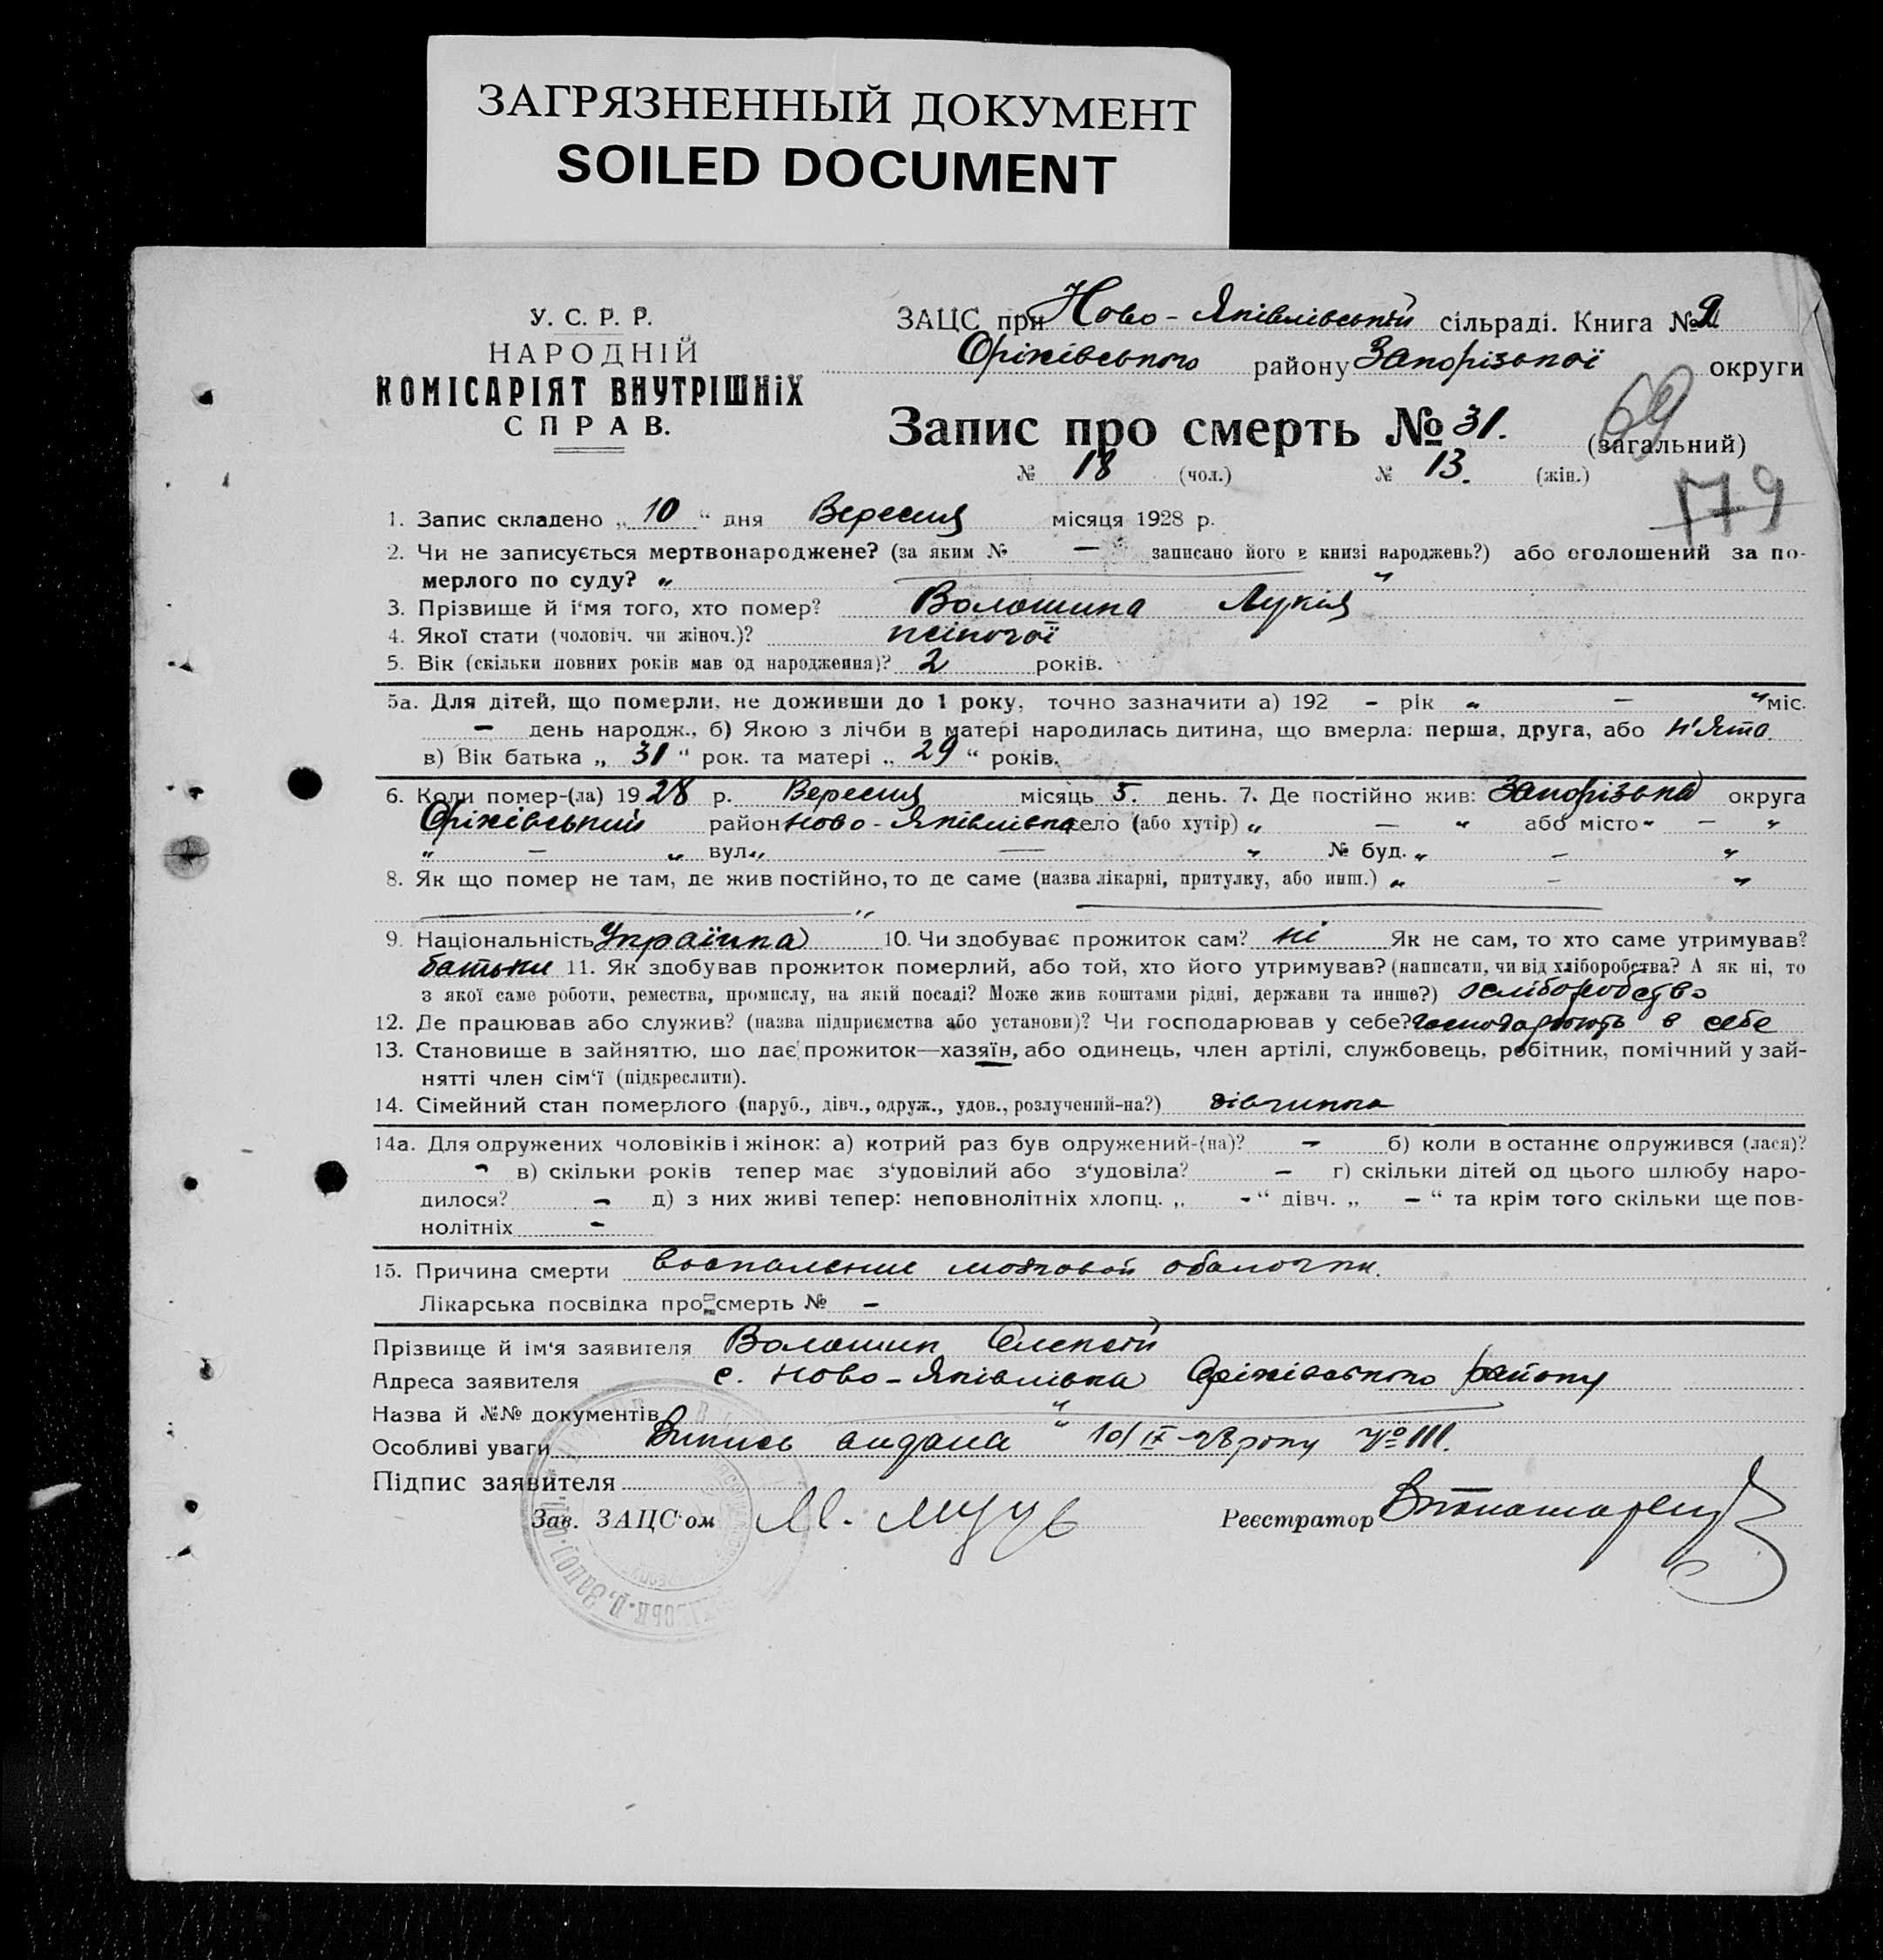 ЗАГРЯЗНЕННЫЙ ДОКУМЕНТ
SOILED DOCUMENT
У. С. Р. Р.
НАРОДНІЙ
КОМІСАРІЯТ ВНУТРІШНІХ
СПРАВ.
ЗАЦС при Ново-Яківлівській сільраді. Книга №
Оріхівського району Запорізької округи
Запис про смерть № 31. (загальний)
69
№ 18 (чол.) № 13. (жін.)
179
1. Запис складено „ 10 “ дня Вересня місяця 1928 р.
2. Чи не записується мертвонароджене? (за яким № — записано його в книзі народжень?) або оголошений за по-
мерлого по суду? „ “
3. Прізвище й і'мя того, хто помер? Волошина Лукія
4. Якої стати (чоловіч. чи жіноч.)? жіночої
5. Вік (скільки повних років мав од народження)? 2 років.
5а. Для дітей, що померли, не доживши до 1 року, точно зазначити а) 192 - рік „ — “ міс.
— день народж., б) Якою з лічби в матері народилась дитина, що вмерла: перша, друга, або п'ята
в) Вік батька „ 31 “ рок. та матері „ 29 “ років.
6. Коли помер-(ла) 1928 р. Вересня місяць 5. день. 7. Де постійно жив: Запорізька округа
Оріхівський район Ново-Яківлівка село (або хутір) „ — “ або місто „ — “
„ — “ вул. „ — “ № буд. „ — “
8. Як що помер не там, де жив постійно, то де саме (назва лікарні, притулку, або инш.) „ — “
9. Національність Українка 10. Чи здобуває прожиток сам? ні Як не сам, то хто саме утримував?
батьки 11. Як здобував прожиток померлий, або той, хто його утримував? (написати, чи від хліборобства? А як ні, то
з якої саме роботи, ремества, промислу, на якій посаді? Може жив коштами рідні, держави та инше?) хліборобство
12. Де працював або служив? (назва підприємства або установи)? Чи господарював у себе? господарюють в себе
13. Становище в зайняттю, що дає прожиток—хазяїн, або одинець, член артілі, службовець, робітник, помічний у зай-
нятті член сім'ї (підкреслити).
14. Сімейний стан померлого (паруб., дівч., одруж., удов., розлучений-на?) дівчинка
14а. Для одружених чоловіків і жінок: а) котрий раз був одружений-(на)? - б) коли в останнє одружився (лася)?
- в) скільки років тепер має з'удовілий або з'удовіла? - г) скільки дітей од цього шлюбу наро-
дилося? - д) з них живі тепер: неповнолітніх хлопц. „ - “ дівч. „ - “ та крім того скільки ще пов-
нолітніх -
15. Причина смерти воспаление мозговой оболочки.
Лікарська посвідка про смерть № -
Прізвище й ім'я заявителя Волошин Олексій
Адреса заявителя с. Ново-Яківлівка Оріхівського району
Назва й №№ документів
Особливі уваги Випись видана 10/IX-28 року № 111.
Підпис заявителя
Зав. ЗАЦС'ом
Реєстратор